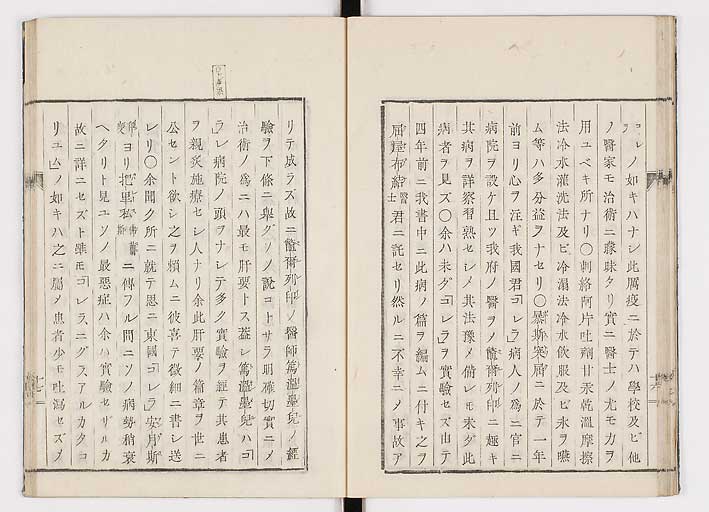 コレノ如キハナシ此厲疫ニ於テハ學校及ビ他
ノ醫家モ治術ニ蒙昧タリ實ニ醫士ノ尤モ力ヲ
用ユベキ所ナリ〇刺絡阿片吐劑甘汞乾溫摩擦
法冷水灌洗法及ビ冷溻法冷水飲服及ビ氷ヲ嚥
ム等ハ多分益ヲナセリ〇暴斯寞屈ニ於テ一年
前ヨリ心ヲ注ギ我國君コレラ病人ノ爲ニ官ニ
病院ヲ設ケ且ツ我府ノ醫ヲノ 列印ニ趣キ
其病ヲ詳察習熟セシメ其法豫メ備レモ未ダ此
病者ヲ見ズ〇余ハ未ダコレラヲ實驗セズ由テ
四年前ニ我書中ニ此病ノ篇ヲ編ムニ付キ之ヲ
布結 醫士 君ニ託セリ然ルニ不幸ニメ事故ア
リテ成ラズ故ニ 列印ノ醫師 兒ノ經
驗ヲ下條ニ擧グソノ說コトサラ明確切實ニメ
治術ノ爲ニハ最モ肝要トス蓋シ 兒ハコ
ラレ病院ノ頭ヲナシテ多ク實驗ヲ經テ其患者
ヲ親炙施療セシ人ナリ余此肝要ノ篇章ヲ世ニ
公セント欲シ之ヲ頼ムニ彼喜テ微細ニ書シ送
レリ〇余聞ク所ニ就テ思ニ東國コレラ安月斯
ヨリ把里私 ニ傳フル間ニソノ病勢稍衰
ヘタリト見ユソノ最惡症ハ余ハ實驗セザルカ
故ニ詳ニセズト雖モコレラニグスアルカタコ
リユムノ如キハ之ニ屬メ患者少モ吐瀉セズメ